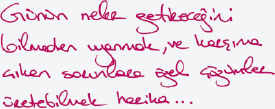 Günün neler getireceğini
bilmeden uyanmak, ve karşıma
çıkan sorunlara özel çözümler
üretebilmek harika...